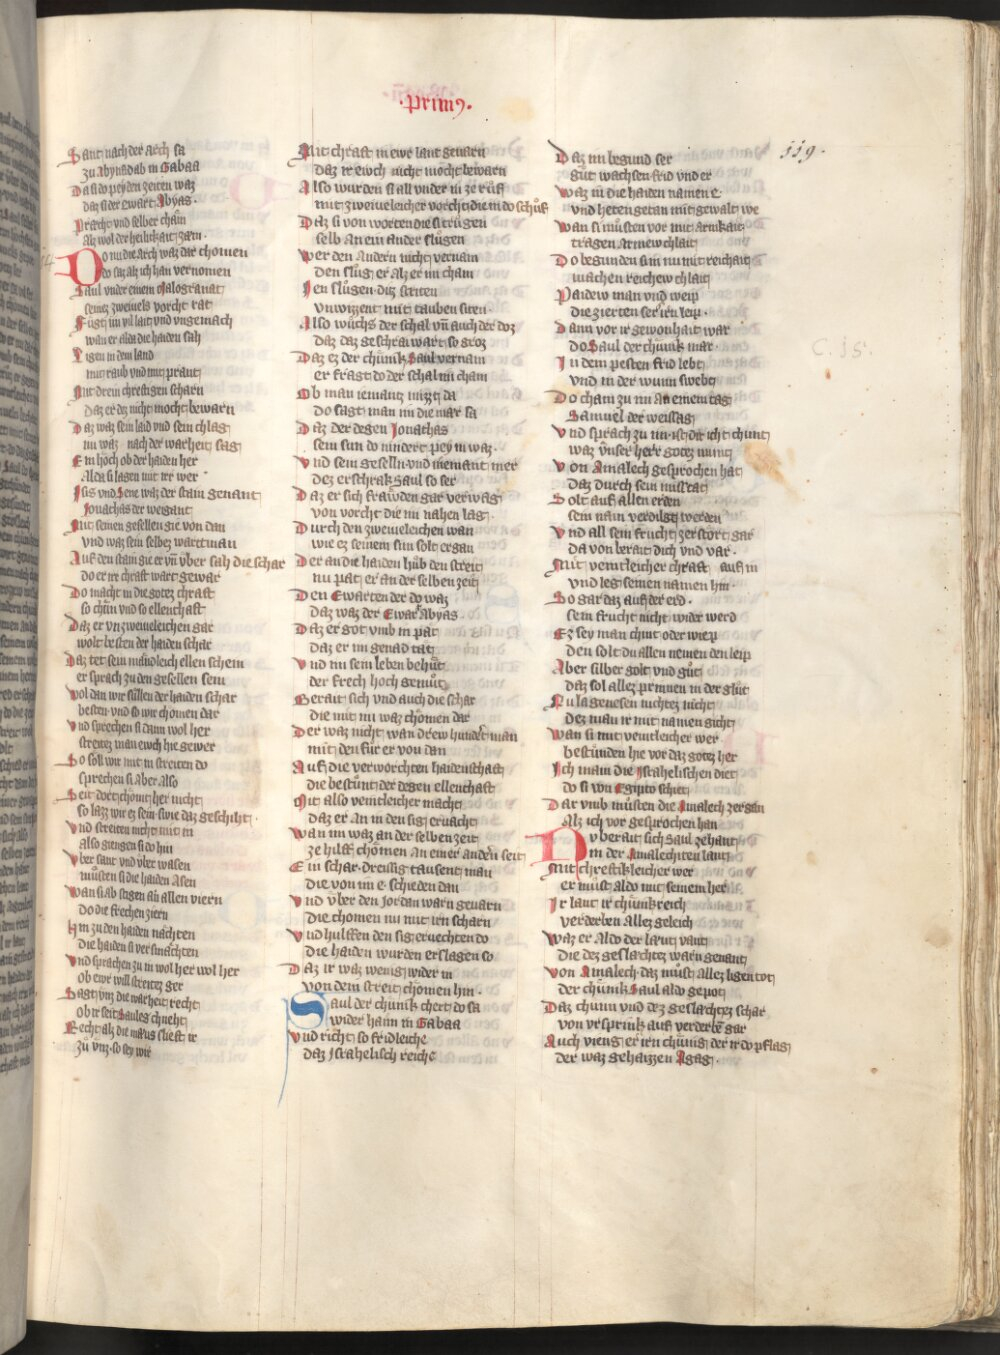 ·Primꝰ·
119·
Sant nach der arch sa
zu Abynadab in Gabaa
Da si do pey den zeiten waz
daz si der ewart Abyas·
Pracht vnd selber cham
Alz wol der heilikait zam·
Do nu die arch waz dar chomen
do saz alz ich han vernomen
Saul vnder einem Malogranat
seinez zweiuels vorcht rat
Fugt im vil lait vnd vngemach
wan er alda die haiden sach
Ligen in dem land
mit raub vnd mit prant
Mit drein chreftigen scharn
Daz er dez nicht mocht bewarn
Daz waz sein laid vnd sein chlag
nu waz nach der warheit sag
Ein hoch ob der haiden her
Alda si lagen mit irr wer
Isis vnd Sene waz der stain genant
Jonathas der weigant
Mit seinen gesellen gie von dan
vnd waz sein selbez wartman
Auf den stain gie er vñ vber sah die schar
do er irr chraft wart gewar
Do macht in die gotez chraft
so chün vnd so ellenthaft
Daz er vnzweiueleichen gar
wolt besten der haiden schar
Daz tet sein mändleich ellen schein
er sprach zu den gesellen sein
Wol dan wir sullen der haiden schar
besten vnd so wir chomen dar
Vnd sprechen si dann wol her
streitez man ewch hie gewer
So soll wir mit in streiten do
sprechen si Aber Also
Seit dort chomt her nicht
so lazz wir ez sein swie daz geschiht·
Vnd streiten nicht mit in
Also giengen si do hin
Vber sant vnd vber wasen
müsten si die haiden Asen
Wan si ab stigen an allen viern
do die frechen ziern
Hin zu den haiden nachten
die haiden si versmachten
Vnd sprachen zu in wol her wol her
ob ewr will streitez ger
Sagt vnz die warheit recht
Ob ir seit Saules chneht
Recht alz die maus slieft ir
zü vnz so sey wir
Mit chraft in ewr lant geuarn
daz ir ewch nicht mocht bewarn
Also wurden si all vnder in ze rüf
mit zweiueleicher vorcht die in do schüf
Daz si von worten die si trügen
selb An ein ander slügen
Wer den Andern nicht vernam
den slüg er alz er im cham
Jen slügen diz striten
vnwizzent mit tauben siten·
Also wuchs der schal vñ auch der doz
daz daz geschrai wart so groz
Daz ez der chünik Saul vernam
er fragt do der schal im cham
Ob man iemantz mizzt da
do sagt man im die mär sa
Daz der degen Jonathas
sein sun do nindert pey in waz·
Vnd sein geselln vnd niemant mer
dez erschrak Saul so ser
Daz er sich fräwden gar verwag
von vorcht die im nahen lag·
Durch den zweiueleichen wan
wie ez seinem sun solt ergan
Der an die haiden hüb den streit
nu pat er an der selben zeit
Den Ewarten der do waz
daz waz der Ewart Abyas·
Daz er got vmb in pät
daz er im genad tät
Vnd im sein leben behüt
der frech hoch gemüt
Berait sich vnd auch die schar
die mit im waz chomen dar
Der waz nicht wan drew hundert man
mit den für er von dan
Auf die verworchten haidenschaft
die bestünt der degen ellenthaft
Mit also veintleicher macht
daz er An in den sig eruacht
Wan im waz an der selben zeit
ze hilff chomen An einer andern seit
Ein schar dreissig tausent man
die von im e· scheden dan
Vnd vber den Jordan warn geuarn
die chomen nu mit irn scharn
Vnd hulffen den sig eruechten do
die haiden wurden erslagen so
Daz ir waz wenig wider in
von dem streit chomen hin·
Saul der chünik chert do sa
wider haim in Gabaa
Vnd richt so fridleiche
daz Israhelisch reiche
Daz im begund ser
güt wachsen frid vnd er
Waz in die haiden namen e·
vnd heten getan mit gewalt we
Wan si müsten vor mit armkait
tragen Armew chlait
Do begunden sim mit reichait
machen reichew chlait
Paidew man vnd weip
die zierten ser irn leip·
Dann vor ir gewonhait war
do Saul der chünik mar·
In dem pesten frid lebt
vnd in der wunn swebt
Do cham zu im An einem tag
Samuel der weissag
Vnd sprach zu im ist dir icht chunt
waz vnser herr gotez munt
Von Amalech gesprochen hat
daz durch sein missetat
Solt auf allen erden
sein nam verdilgt werden
Vnd all sein frucht zerstort gar
da von berait dich vnd var·
Mit veintleicher chraft auf in
vnd leg seinen namen hin·
So gar daz auf der erd·
sein frucht nicht wider werd
Ez sey man chint oder weip
den solt du allen nemen den leip
Aber silber golt vnd güt
daz sol allez prinnen in der glüt
Nu la genesen nichtez nicht
dez man ir mit namen gicht
Wan si mit veintleicher wer
bestünden hie vor daz gotez her
Ich main die Israhelischen diet
do si von Egipto schiet
Dar vmb müsten die Amalech zergan
Alz ich vor gesprochen han
Du berait sich Saul zehant
in der Amalechiten lant
Mit chrestikleicher wer
er müst aldo mit seinem her
Ir lant ir chünikreich
verderben Allez geleich
Waz er Aldo der lawt vant
die dez geslechtez warn genant
Von Amalech daz müst allez ligen tot
der chünik Saul aldo gepot
Daz chunn vnd dez geslachtez schar
von vrsprink auf verderbt gar
Auch vieng er irn chünig der ir do pflag
der waz gehaizzen Agag·
C. 15.